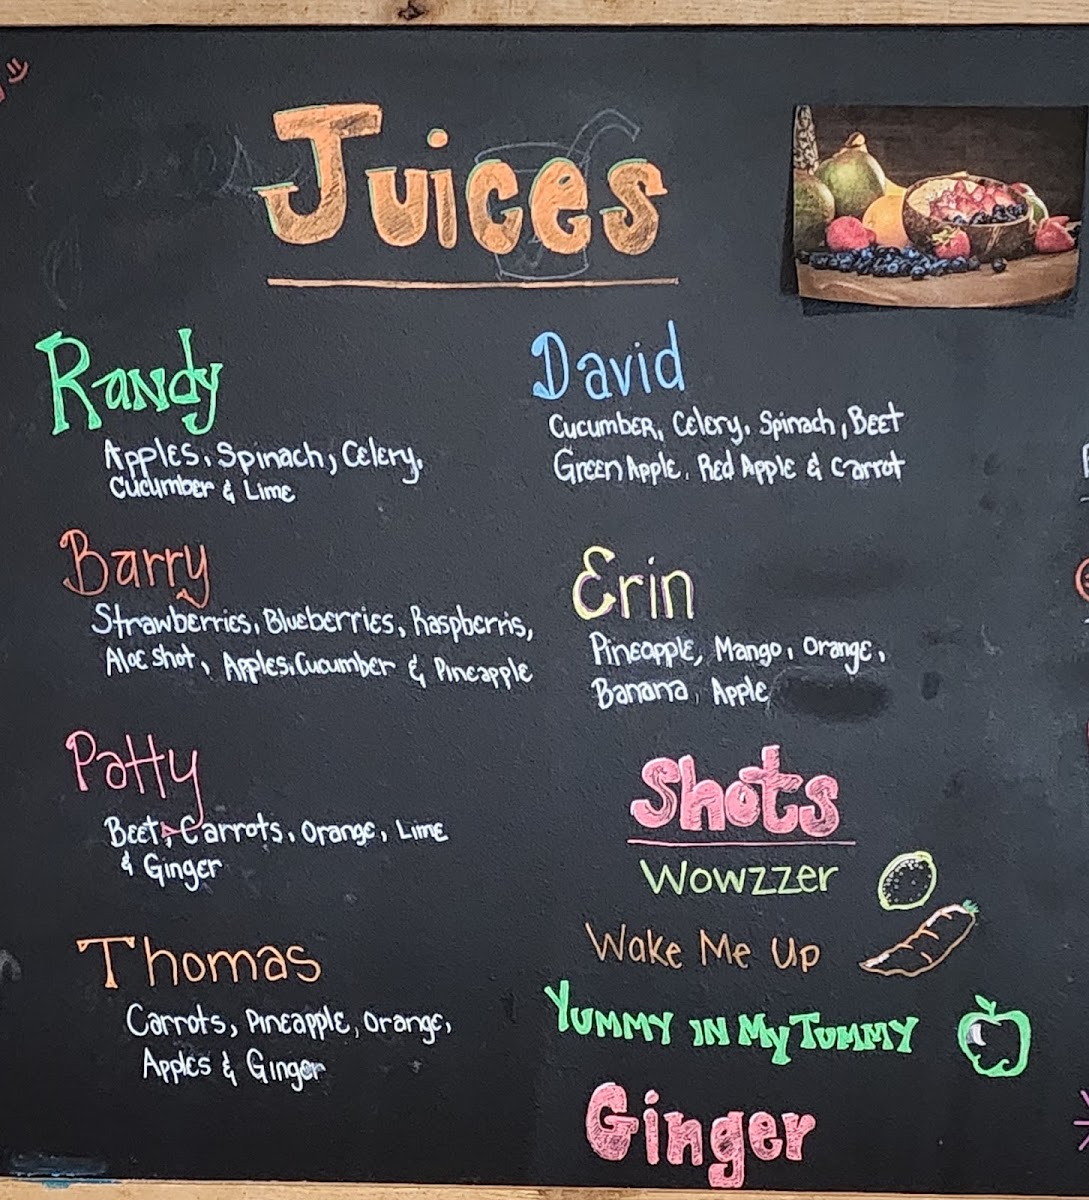 Juices
Randy
Apples, Spinach, Celery,
Cucumber & Lime
Barry
Strawberries, Blueberries, Raspberris,
Aloe Shot, Apples, Cucumber & Pineapple
Patty
Beet, Carrots, Orange, Lime
& Ginger
Thomas
Carrots, Pineapple, Orange,
Apples & Ginger
David
Cucumber, Celery, Spinach, Beet
Green Apple, Red Apple & Carrot
Erin
Pineapple, Mango, Orange,
Banana, Apple
Shots
Wowzzer
Wake Me Up
Yummy in My Tummy
Ginger